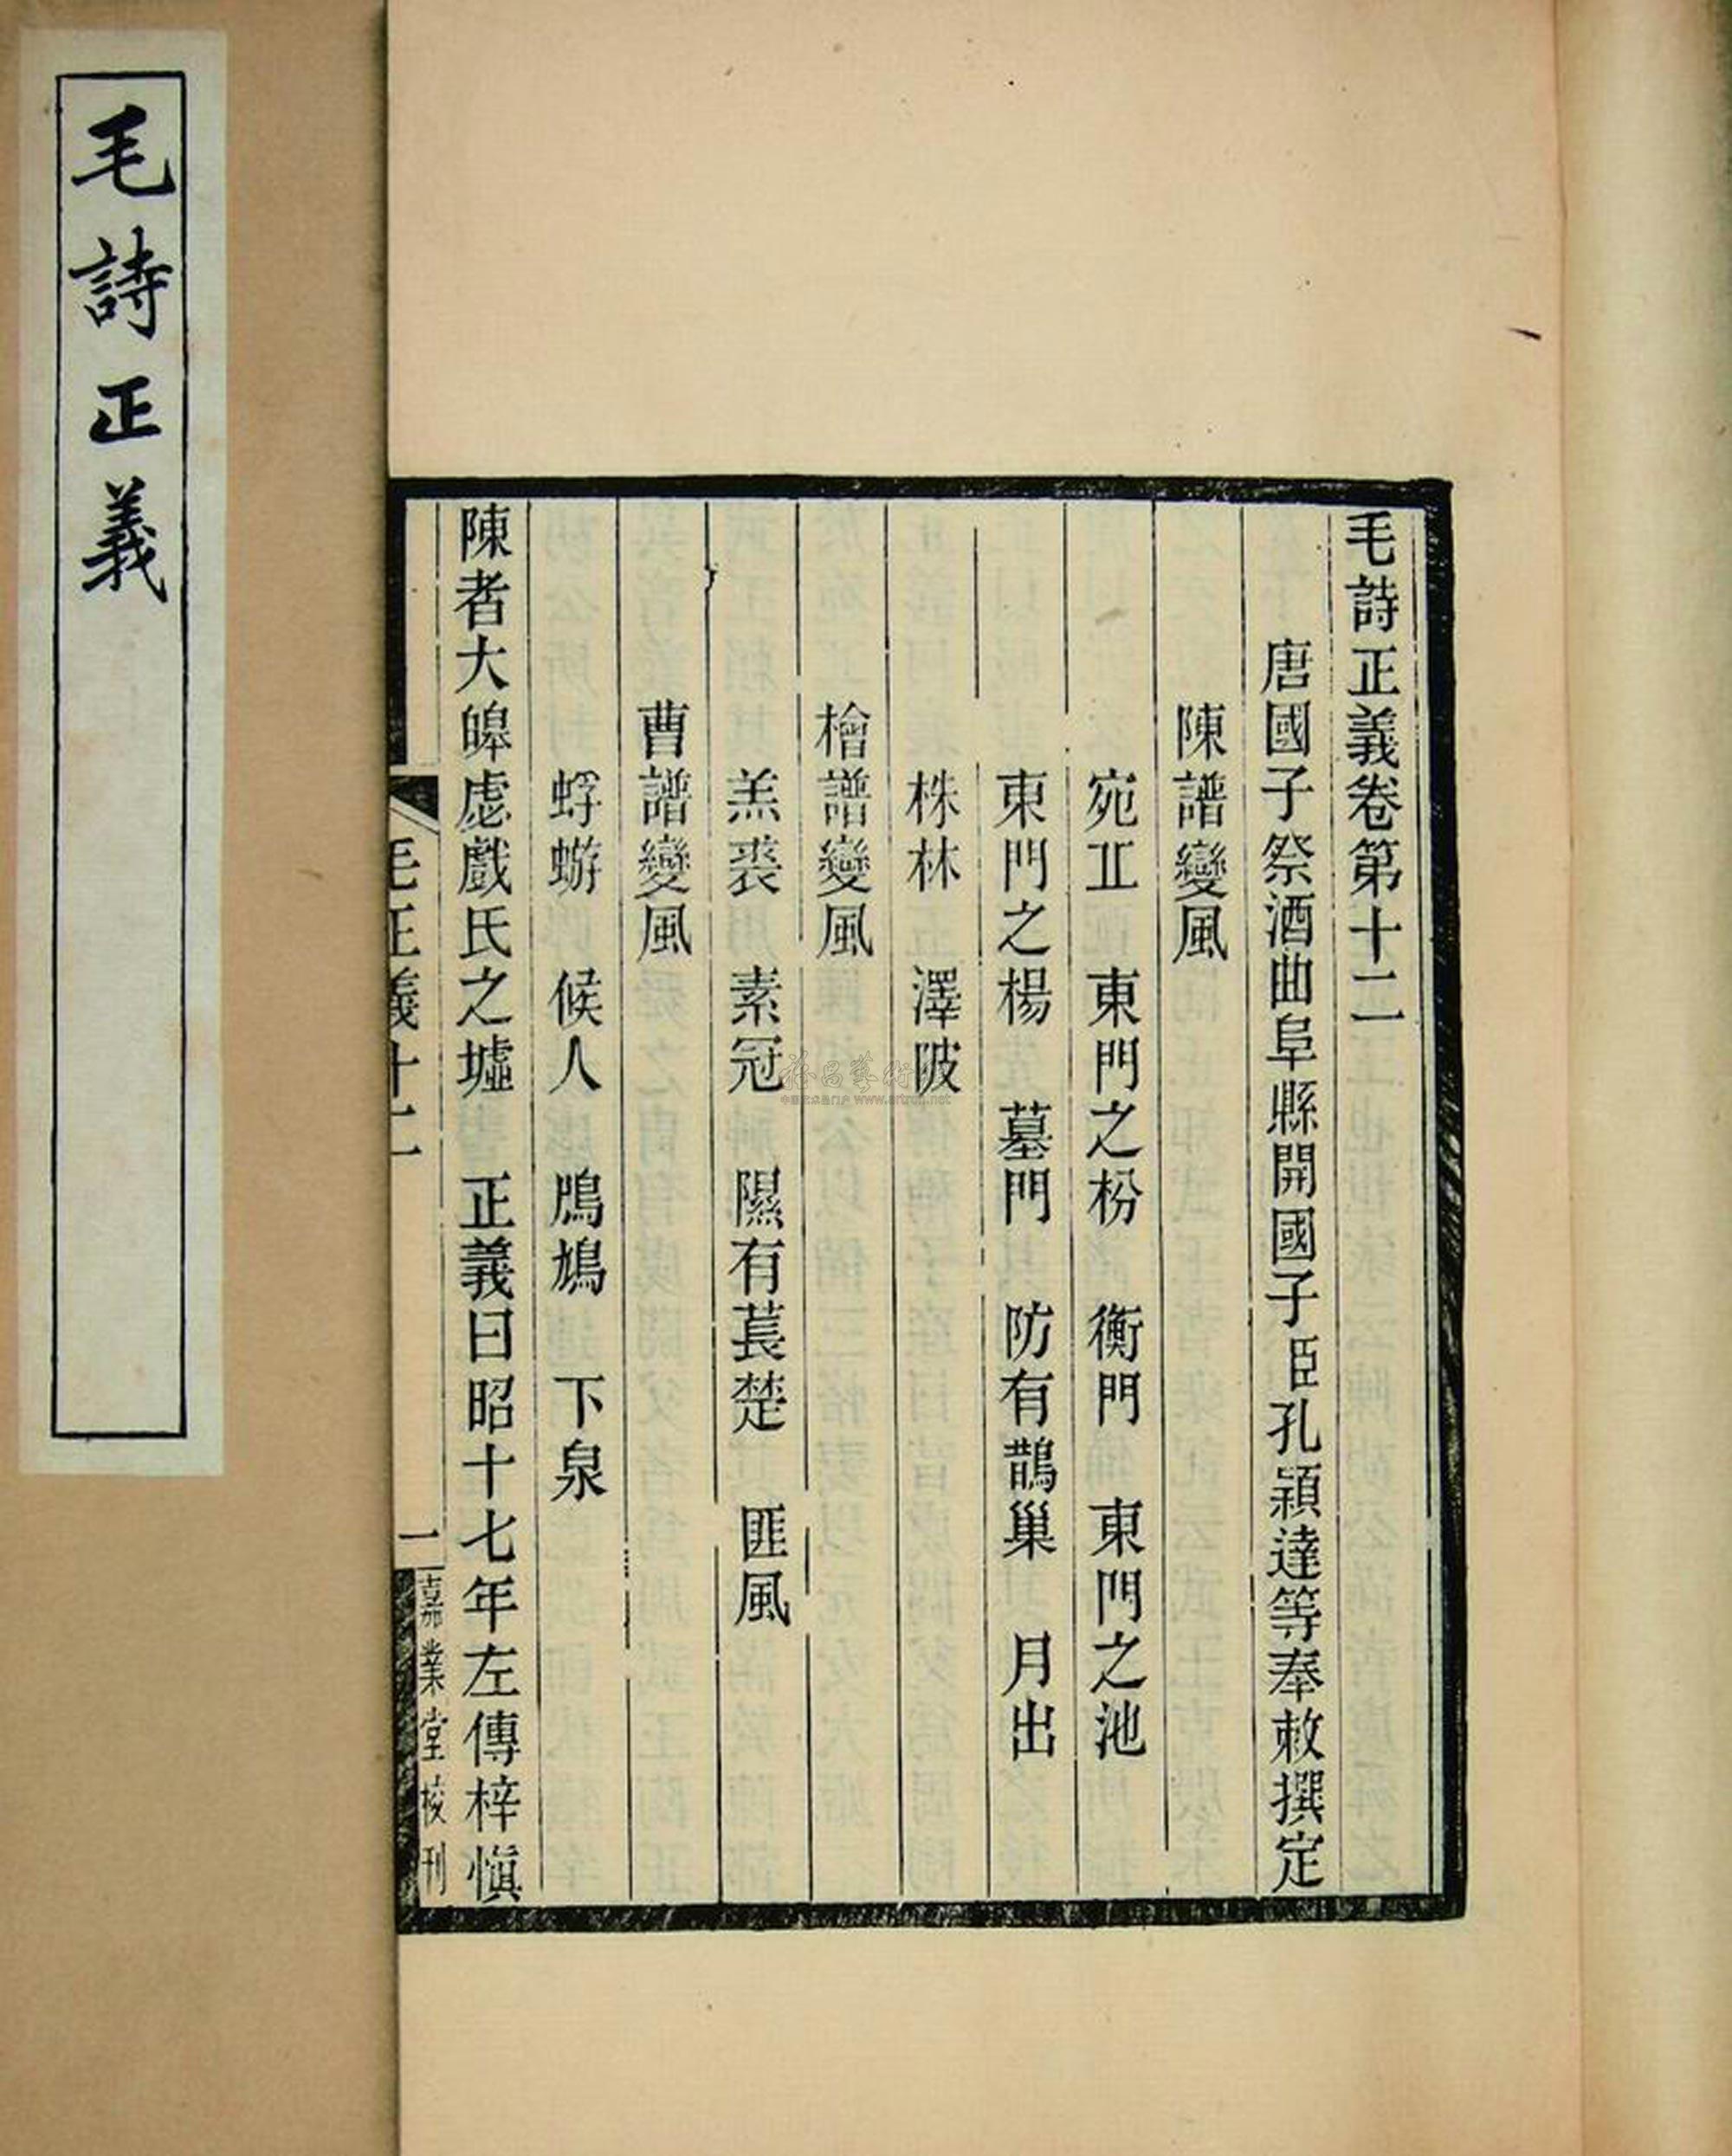 毛詩正義
毛詩正義卷第十二
唐國子祭酒曲阜縣開國子臣孔穎達等奉敕撰定
陳譜變風
宛丘 東門之枌 衡門 東門之池
東門之楊 墓門 防有鵲巢 月出
株林 澤陂
檜譜變風
羔裘 素冠 隰有萇楚 匪風
曹譜變風
蜉蝣 候人 鳲鳩 下泉
陳者大皞虙戲氏之墟 正義曰昭十七年左傳梓愼
毛正義十二
一
嘉業堂校刊
www.artron.net